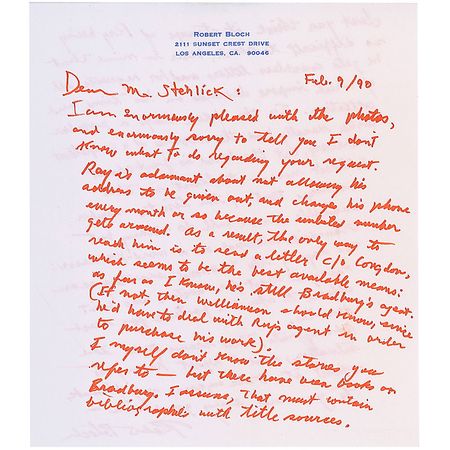 ROBERT BLOCH
2111 SUNSET CREST DRIVE
LOS ANGELES, CA. 90046
Feb. 9/90
Dear Mr. Stehlick:
I am enormously pleased with the photos,
and enormously sorry to tell you I don't
know what to do regarding your request.
Ray is adamant about not allowing his
address to be given out, and changes his phone
every month or so because the unlisted number
gets around. As a result, the only way to
reach him is to send a letter c/o Congdon,
which seems to be the best available means:
as far as I know, he's still Bradbury's agent.
(If not, then Williamson should know, since
he'd have to deal with Ray's agent in order
to purchase his work).
I myself don't know the stories you
refer to — but there have been books on
Bradbury. I assume, that must contain
bibliographies with title sources.